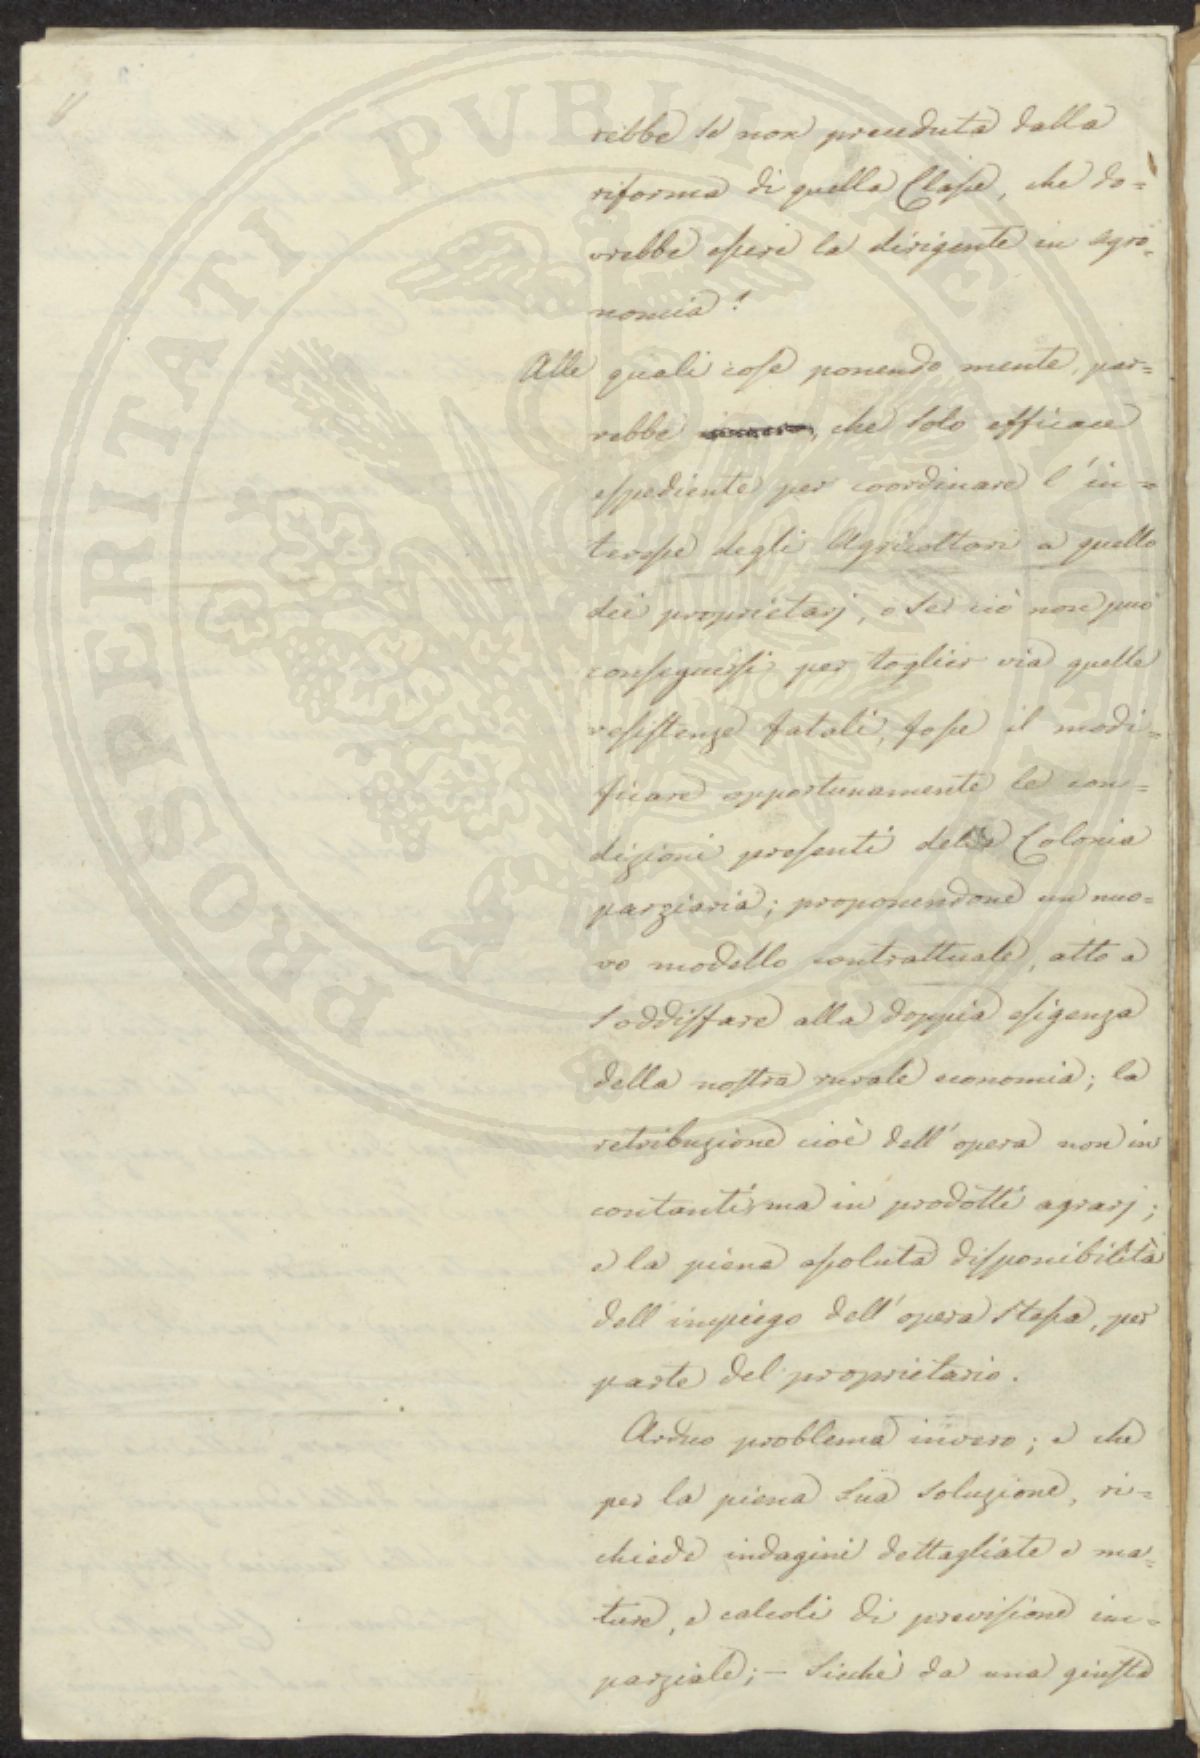 rebbe se non preceduta dalla
riforma di quella Classe, che do=
vrebbe essere la dirigente in agro=
nomia?
Alle quali cose ponendo mente, par=
rebbe, che solo efficace
espediente per coordinare l'in=
teresse degli Agricoltori a quello
dei proprietarj, o se ciò non può
conseguirsi per toglier via quelle
resistenze fatali, fosse il modi=
ficare opportunamente le con=
dizioni presenti della Colonia
parziaria; proponendone un nuo=
vo modello contrattuale, atto a
soddisfare alla doppia esigenza
della nostra rurale economia; la
retribuzione cioè dell'opera non in
contanti, ma in prodotti agrarj;
e la piena assoluta disponibilità
dell'impiego dell'opera stessa, per
parte del proprietario.
Arduo problema invero; e che
per la piena sua soluzione, ri=
chiede indagini dettagliate e ma=
ture, e calcoli di previsione im=
parziale; – Sicchè da una giusta
PROSPERITATI PVBLICAE AVGENDAE